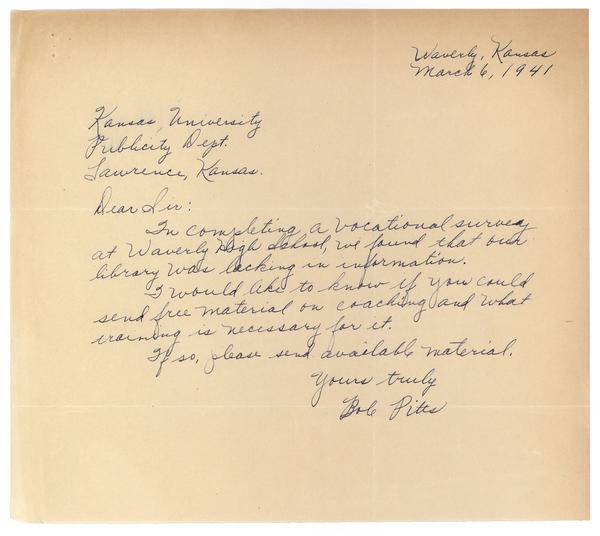 Waverly, Kansas
March 6, 1941
Kansas University
Publicity Dept.
Lawrence, Kansas.
Dear Sir:
In completing a vocational survey
at Waverly High School, we found that our
library was lacking in information.
I would like to know if you could
send free material on coaching and what
training is necessary for it.
If so, please send available material.
Yours truly
Bob Pitts